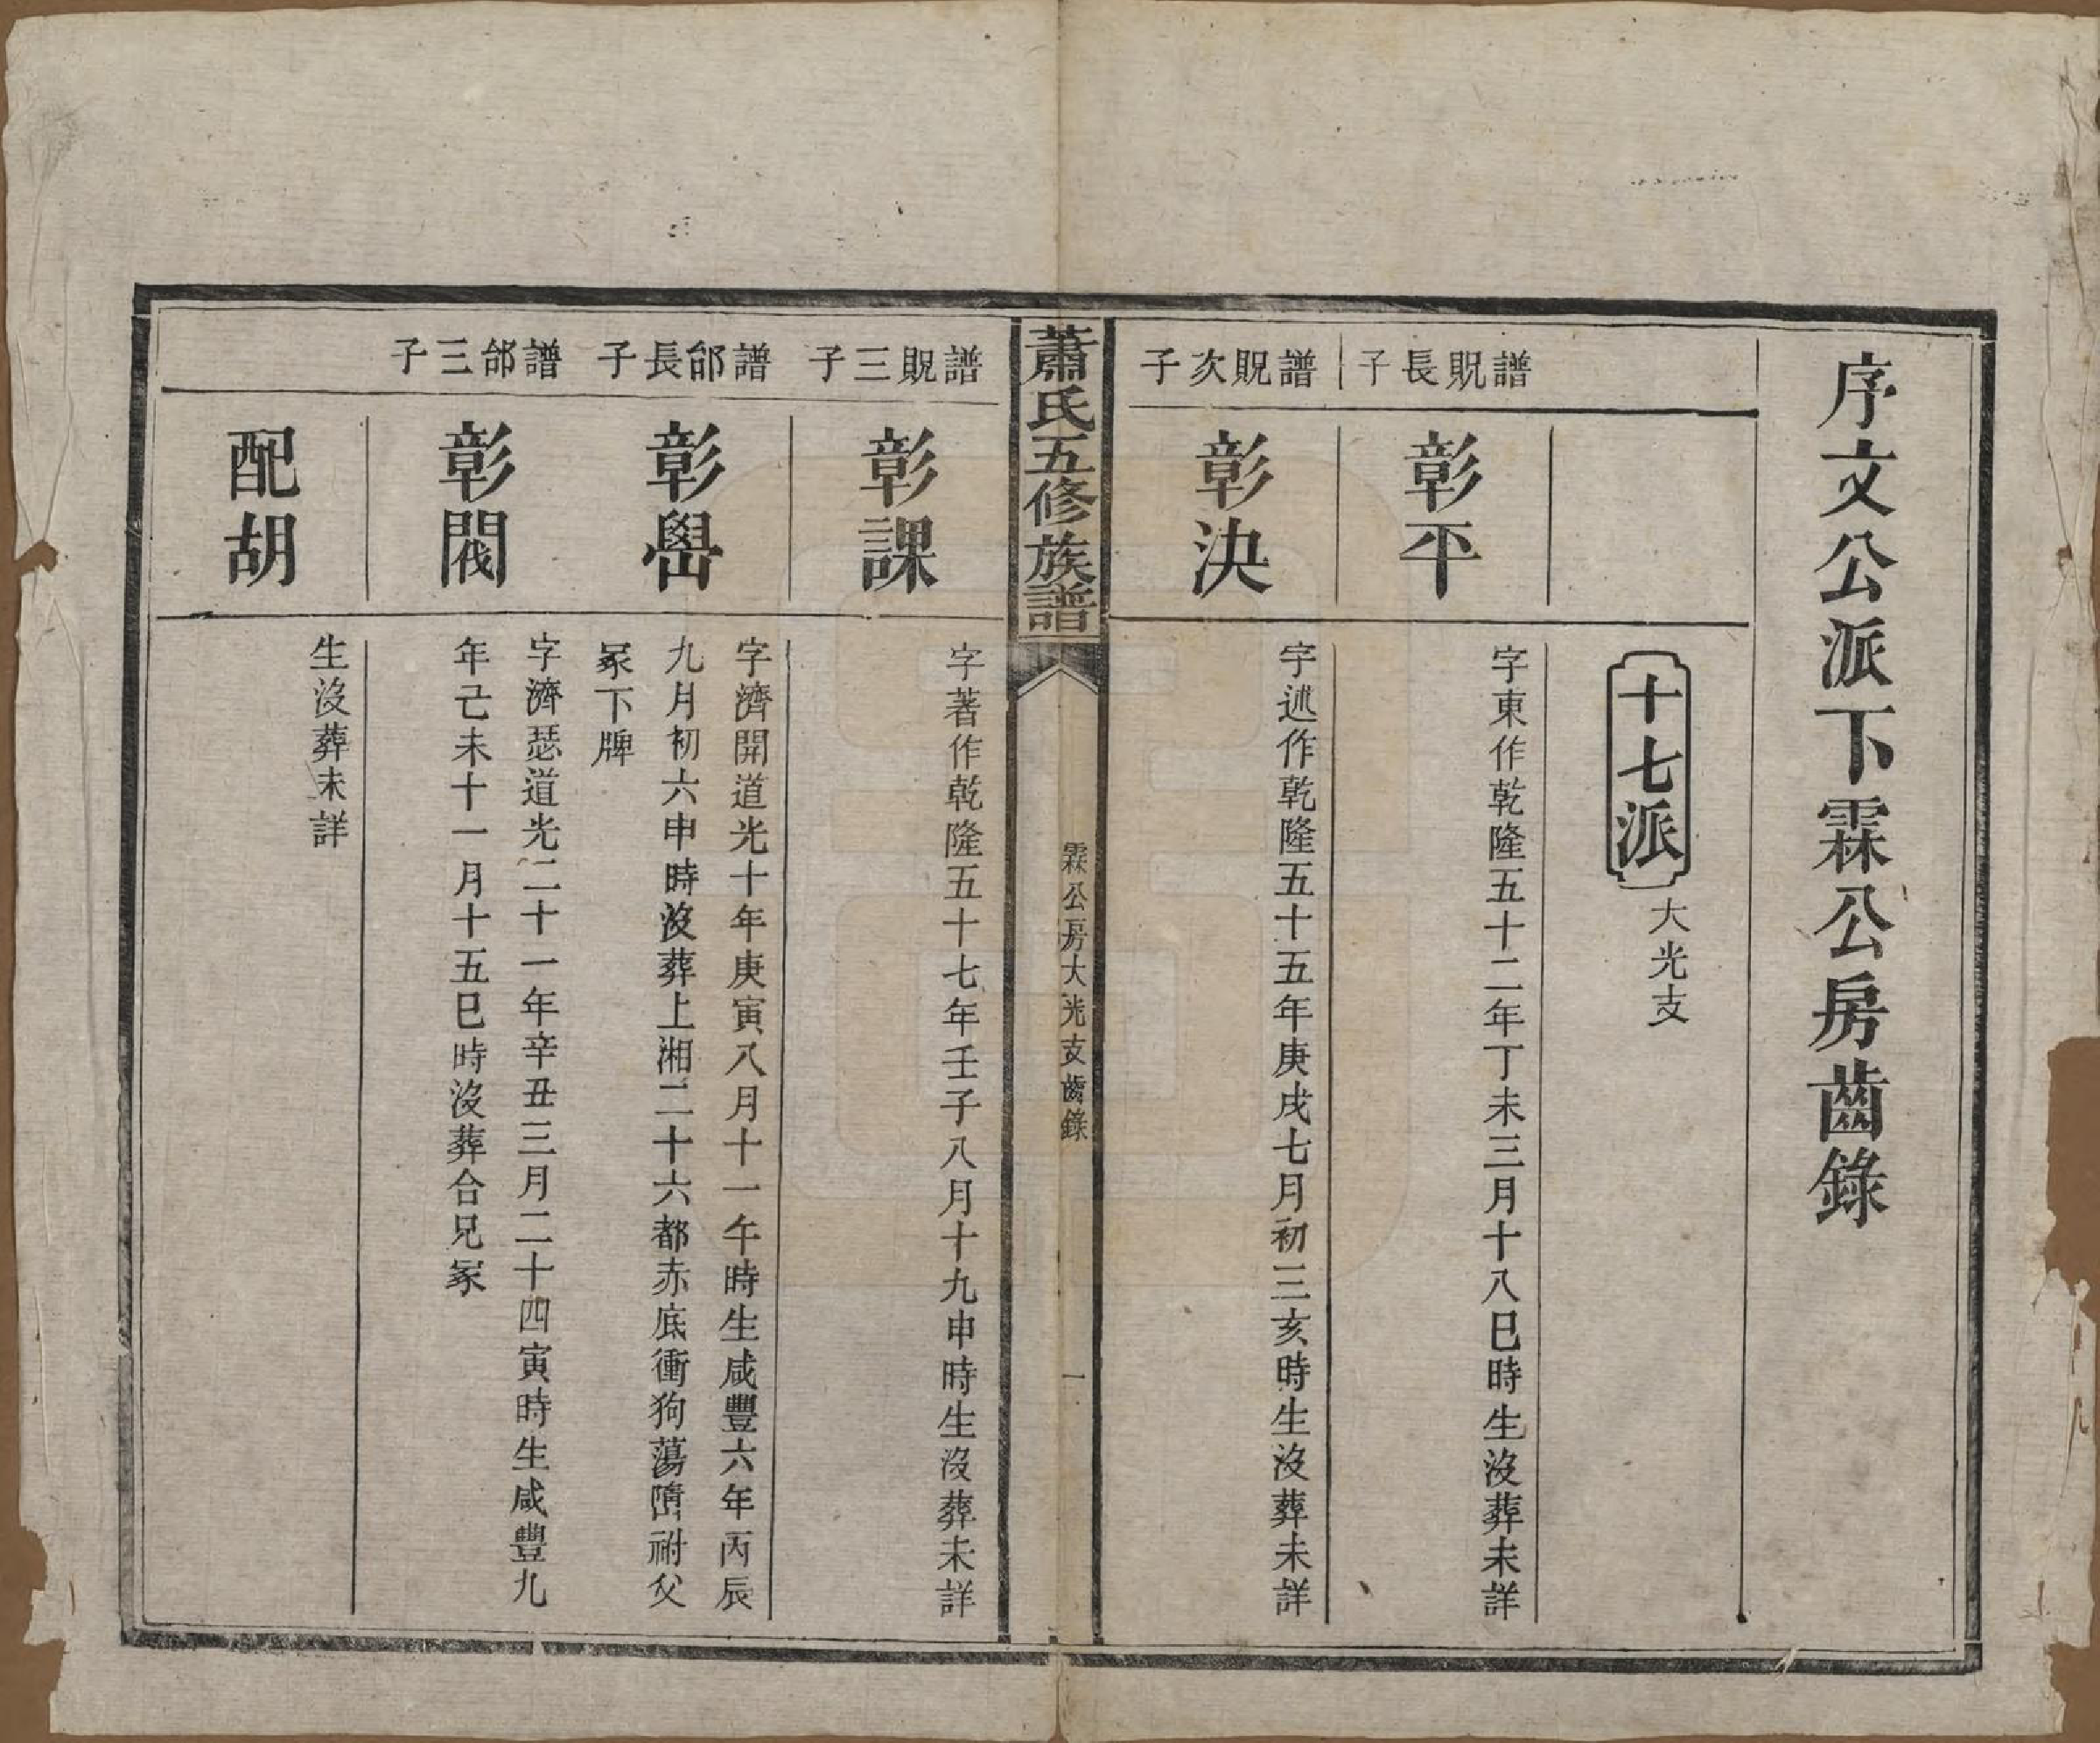 序文公派下霖公房齒錄
十七派
大光支
譜貺長子
彰平
字東作乾隆五十二年丁未三月十八巳時生沒葬未詳
譜貺次子
彰決
字述作乾隆五十五年庚戌七月初三亥時生沒葬未詳
蕭氏五修族譜
霖公房大光支齒錄
一
譜貺三子
彰課
字著作乾隆五十七年壬子八月十九申時生沒葬未詳
譜邰長子
彰嶨
字濟開道光十年庚寅八月十一午時生咸豐六年丙辰
九月初六申時沒葬上湘二十六都赤底衝狗蕩隋山祔父
冢下牌
譜邰三子
彰閥
字濟瑟道光二十一年辛丑三月二十四寅時生咸豐九
年己未十一月十五巳時沒葬合兄冢
配胡
生沒葬未詳